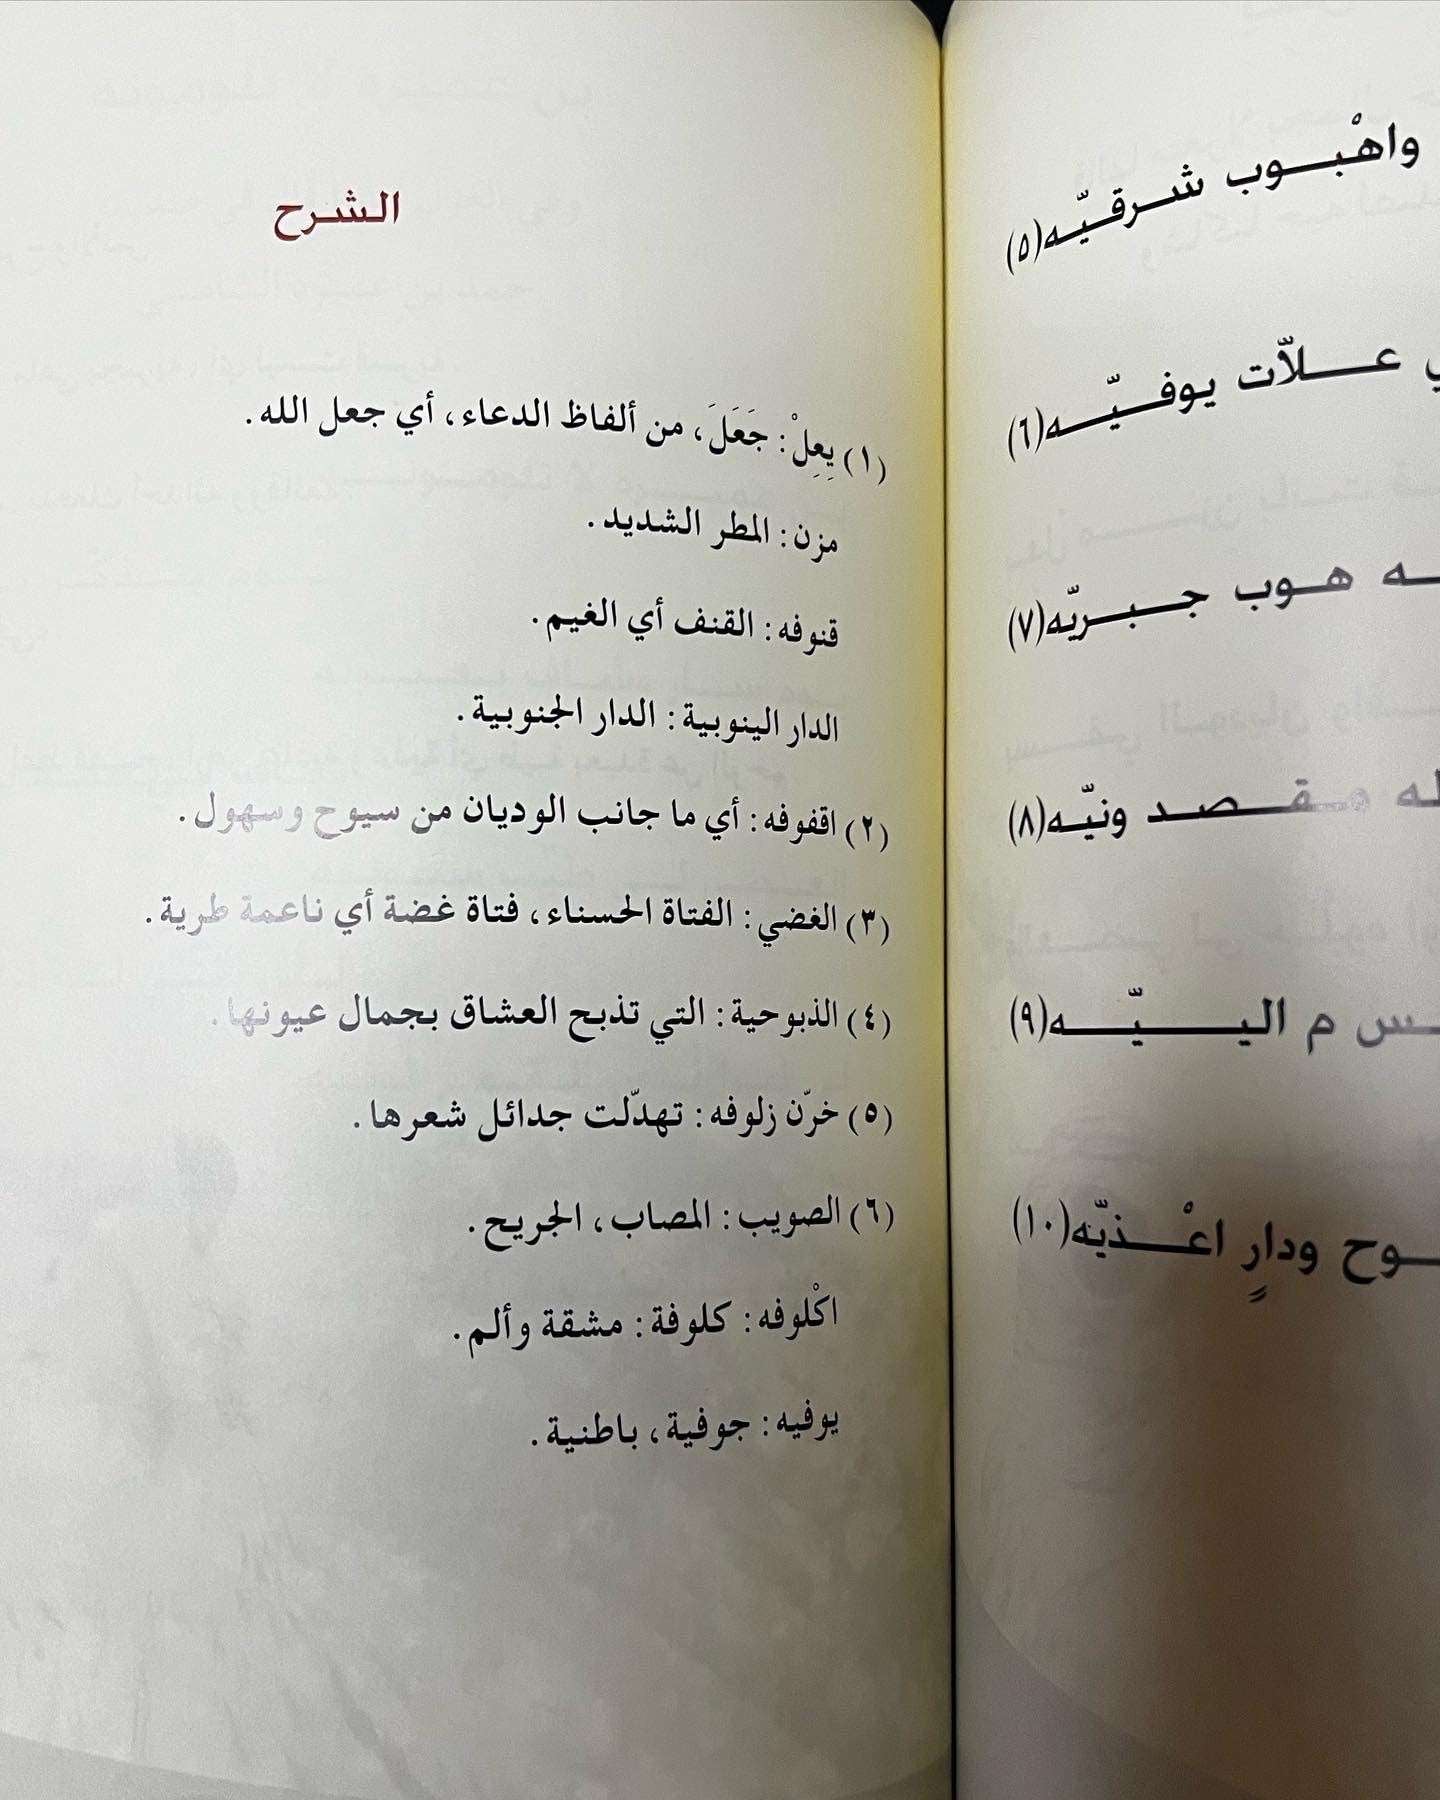 واهْبـوب شرقـيّـه(٥)
عـلاّت يوفـيّـه(٦)
هـوب جـبـريّه(٧)
مـقـصـد ونيّـه(٨)
م الـيـيّـه(٩)
ودارٍ اعْـذيّـه(١٠)
الشرح
(١) يِعِلْ: جَعَلَ، من ألفاظ الدعاء، أي جعل الله.
مزن: المطر الشديد.
قنوفه: القنف أي الغيم.
الدار الينوبية: الدار الجنوبية.
(٢) اقفوفه: أي ما جانب الوديان من سيوح وسهول.
(٣) الغضي: الفتاة الحسناء، فتاة غضة أي ناعمة طرية.
(٤) الذبوحية: التي تذبح العشاق بجمال عيونها.
(٥) خرّن زلوفه: تهدّلت جدائل شعرها.
(٦) الصويب: المصاب، الجريح.
اكْلوفه: كلوفة: مشقة وألم.
يوفيه: جوفية، باطنية.